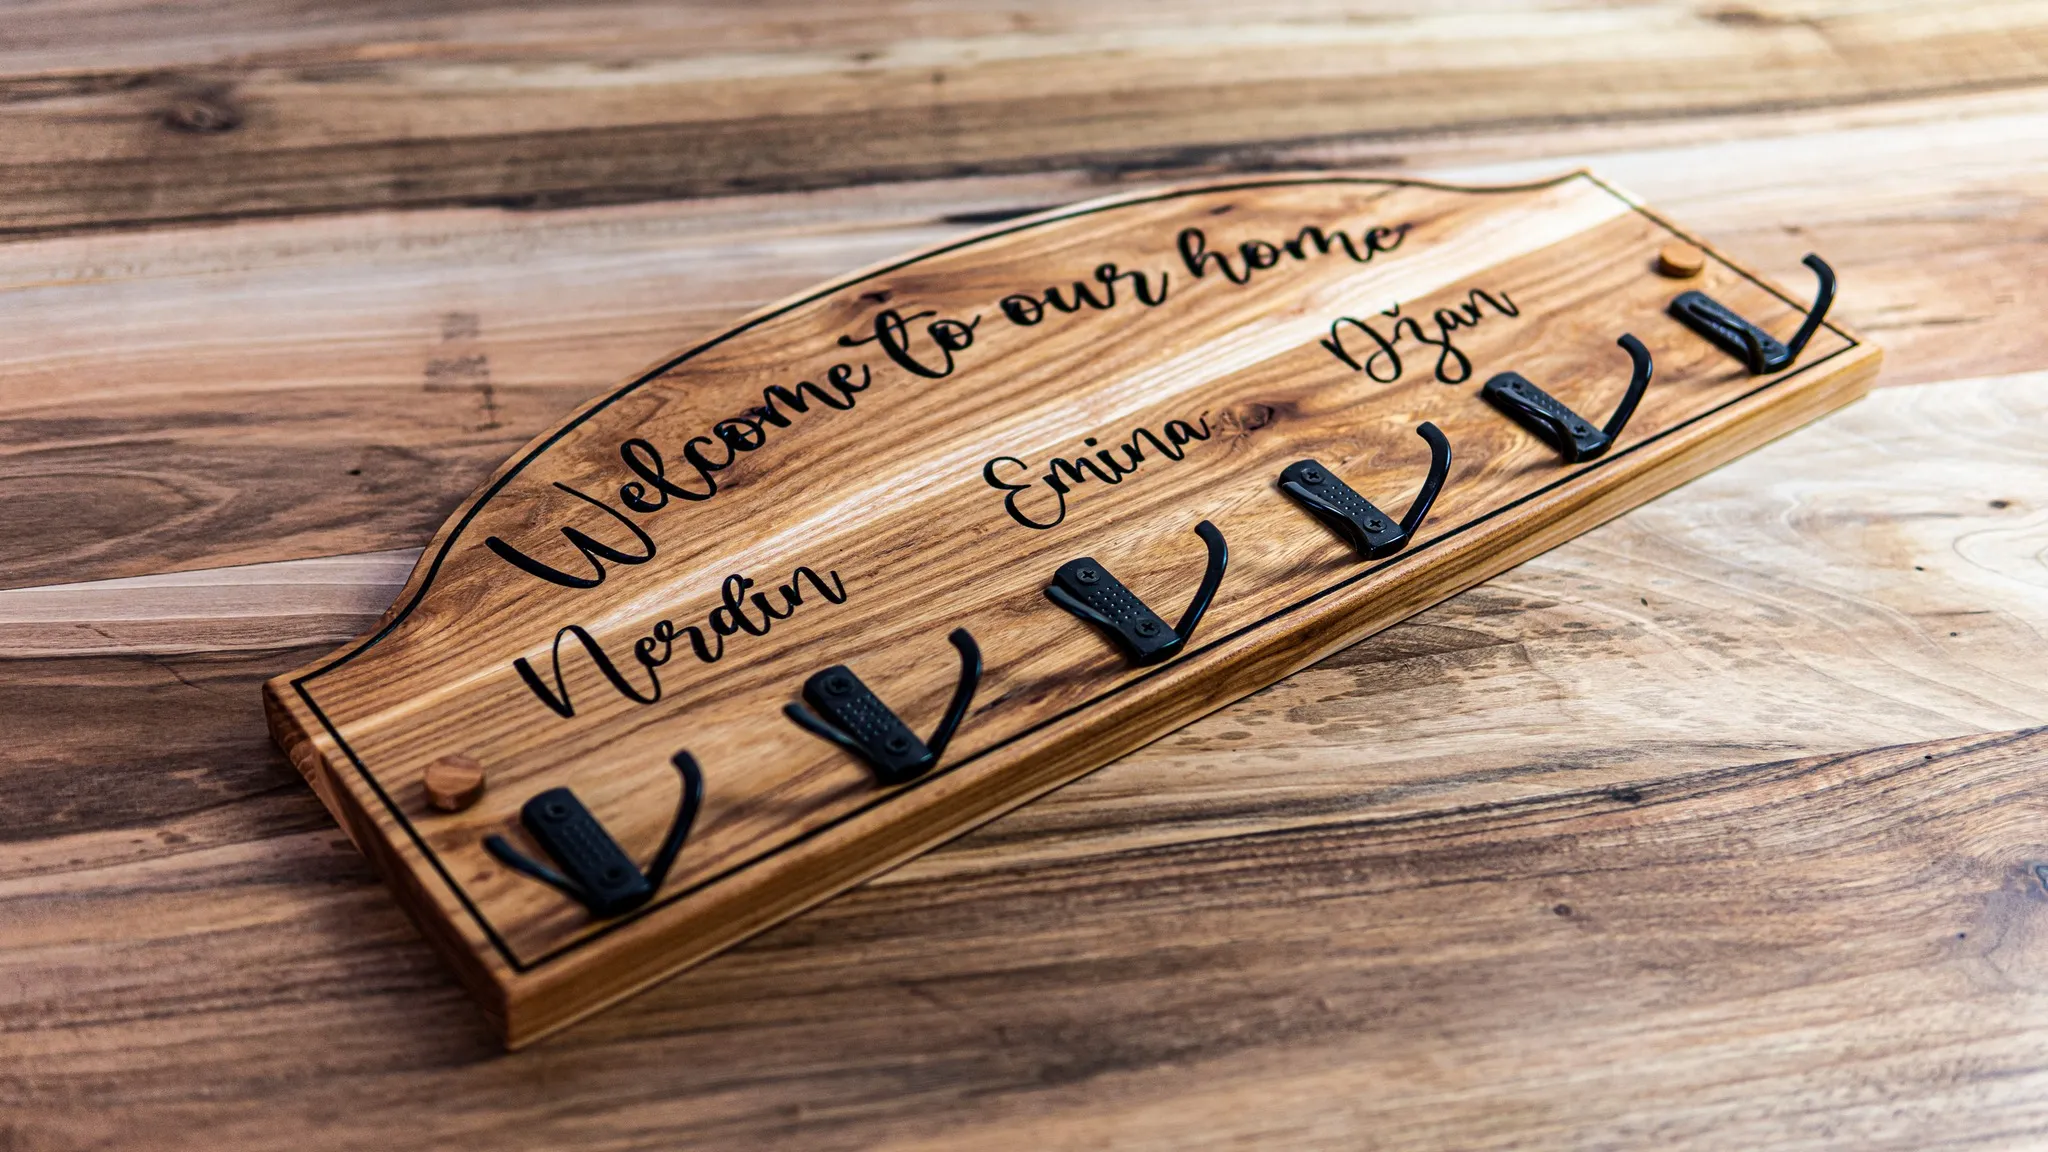 Welcome to our home
Nerdin
Emina
Džan